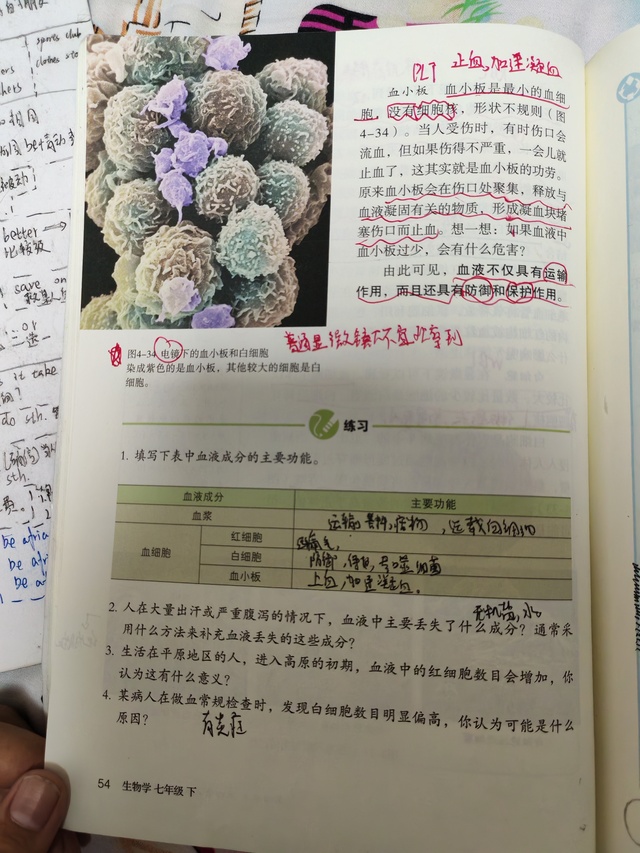 sports club
clothes sto
相同
better
比较级
save
is it take
do sth.
sth.
be afrai
be
be a
PLT 止血,加速凝血
血小板 血小板是最小的血细
胞，没有细胞核，形状不规则（图
4-34）。当人受伤时，有时伤口会
流血，但如果伤得不严重，一会儿就
止血了，这其实就是血小板的功劳。
原来血小板会在伤口处聚集，释放与
血液凝固有关的物质，形成凝血块堵
塞伤口而止血。想一想：如果血液中
血小板过少，会有什么危害？
由此可见，血液不仅具有运输
作用，而且还具有防御和保护作用。
普通显微镜下不容易看到
图4-34 电镜下的血小板和白细胞
染成紫色的是血小板，其他较大的细胞是白
细胞。
练习
1. 填写下表中血液成分的主要功能。
血液成分 主要功能
血浆 运输养料,废物,运载血细胞
红细胞 运输氧
血细胞 白细胞 防御,保护,吞噬细菌
血小板 止血,加速凝血。
无机盐,水
2. 人在大量出汗或严重腹泻的情况下，血液中主要丢失了什么成分？通常采
用什么方法来补充血液丢失的这些成分？
3. 生活在平原地区的人，进入高原的初期，血液中的红细胞数目会增加，你
认为这有什么意义？
4. 某病人在做血常规检查时，发现白细胞数目明显偏高，你认为可能是什么
原因？ 有炎症
54 生物学 七年级 下